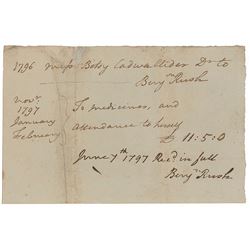 1796 Miss Betsy Cadwallider Dr to
Benjn Rush
Novr.
1797
January
February
To medicines, and
attendance to herself
£ 11:5:0
June 7th 1797 Recd in full
Benjn Rush